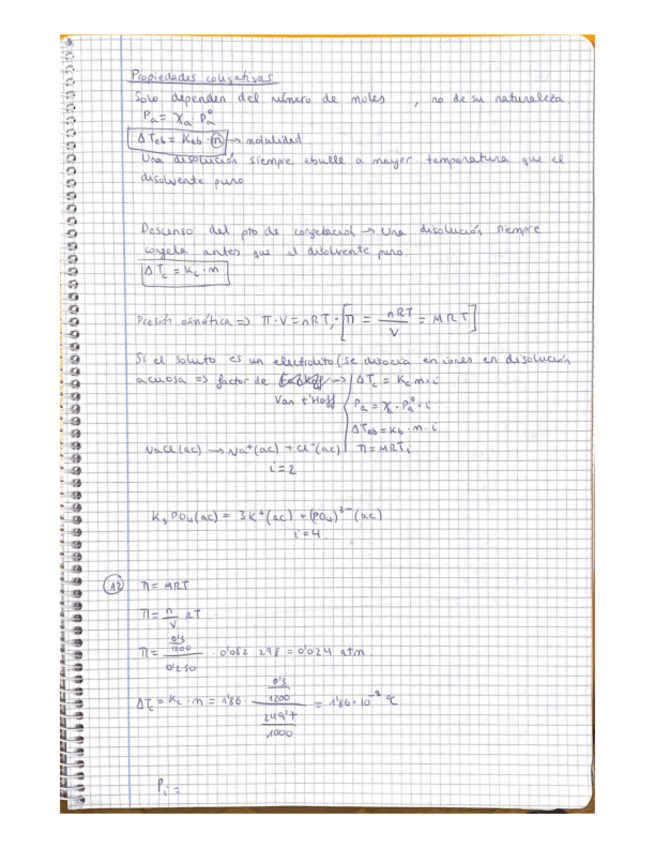 Propiedades coligativas
Solo dependen del número de moles , no de su naturaleza.
Pa = Xa · Pa°
ΔTeb = Keb · m → molalidad
Una disolución siempre ebulle a mayor temperatura que el
disolvente puro
Descenso del pto de congelación → Una disolución siempre
congela antes que el disolvente puro.
ΔTc = Kc · m
Presión osmótica => π · V = nRT, · [π = nRT/V = MRT]
Si el soluto es un electrolito (se disocia en iones en disolución
acuosa => factor de → ΔTc = Kc m · i
Van t'Hoff Pa = Xa · Pa° · i
ΔTeb = Kb · m · i
NaCl(ac) → Na⁺(ac) + Cl⁻(ac) π = MRTi
i = 2
K₃PO₄(ac) = 3K⁺(ac) + (PO₄)³⁻(ac)
i = 4
12 π = MRT
π = n/V RT
π = (0'3/1200)/0'250 · 0'082 · 298 = 0'024 atm
ΔTc = Kc · m = 1'86 · (0'3/1200)/(249'7/1000) = 1'86 · 10⁻³ ℃
Pi =